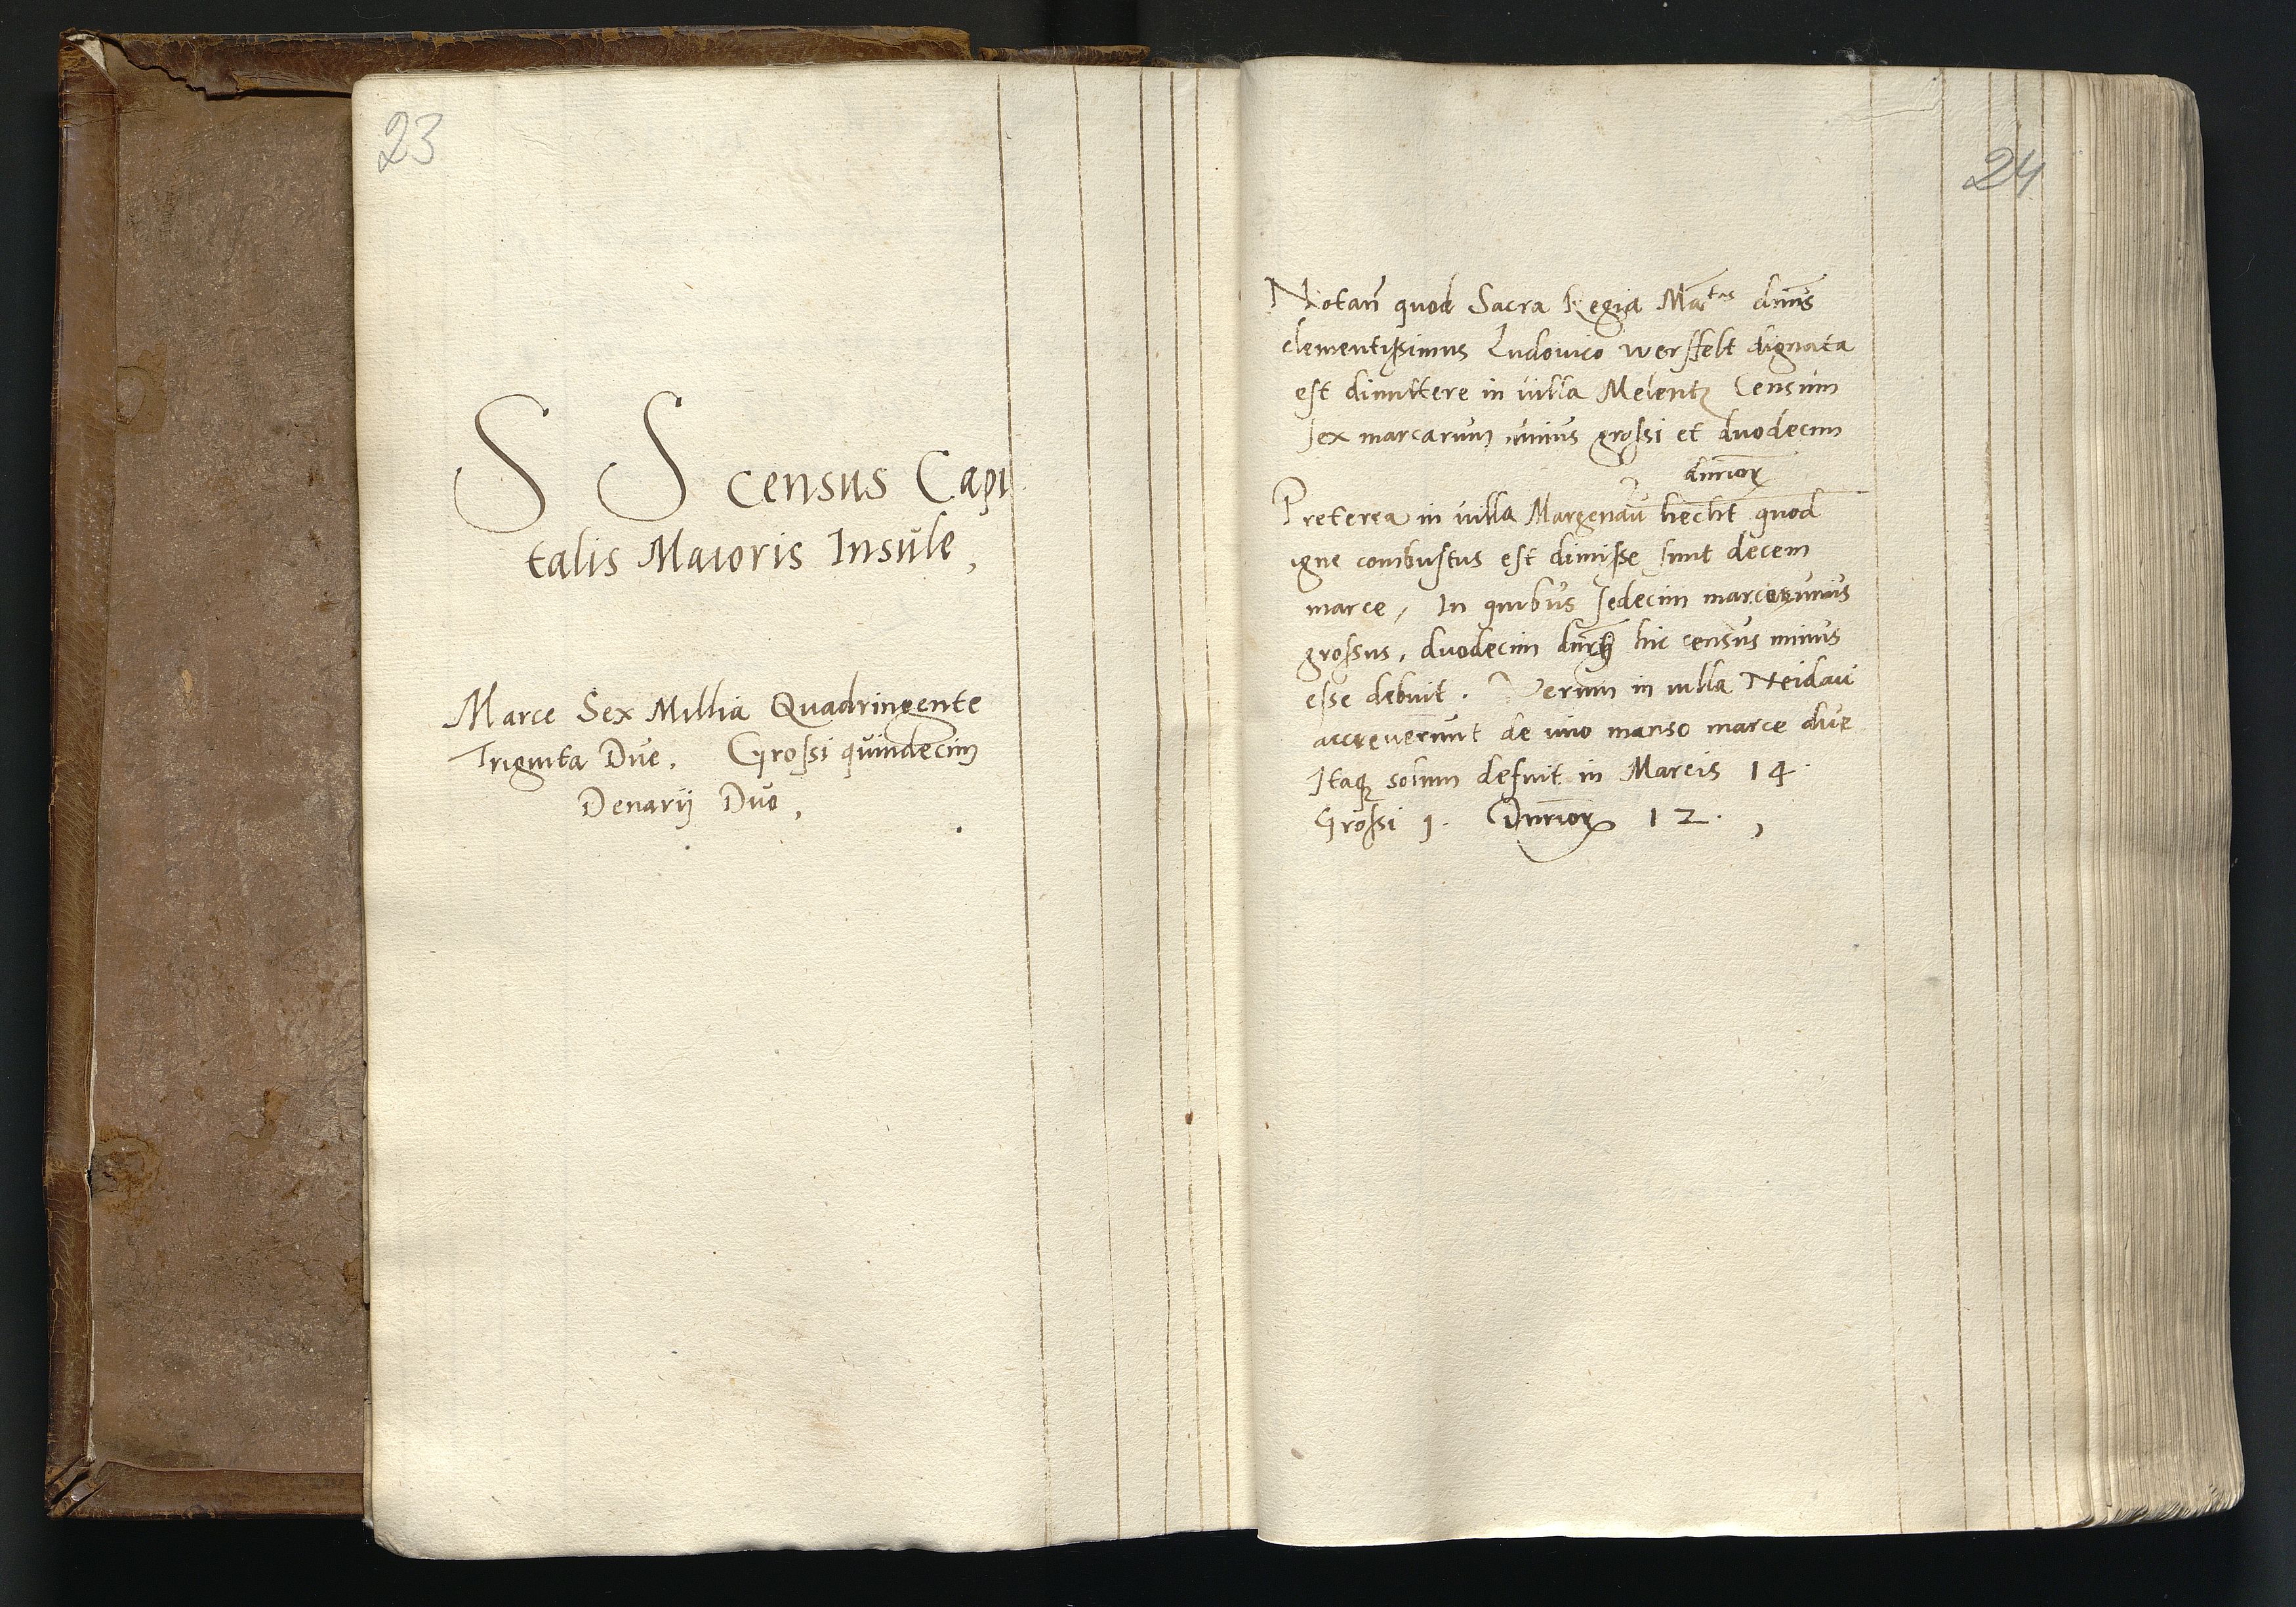 23
S S census Capi
talis Maioris Insule,
Marce Sex Millia Quadringente
Triginta Due. Grossi quindecim
Denarij Duo,
24
Notan̄ quod Sacra Regia Ma^tas dn̄us
clementissimus Ludovico werffelt dignata
est dimittere in villa Melentz Censum
sex marcarum unius grossi et duodecim
dn̄rior
Preterea in villa Margenau hecht quod
igne combustus est dimisse sunt decem
marce, In quibus sedecim marce unus
grossus, duodecim hic census minus
esse debuit. Verum in villa Neidau
accreverunt de uno manso marce due
Itaq solum defuit in Marcis 14.
Grossi 1. Dn̄rior 12.,